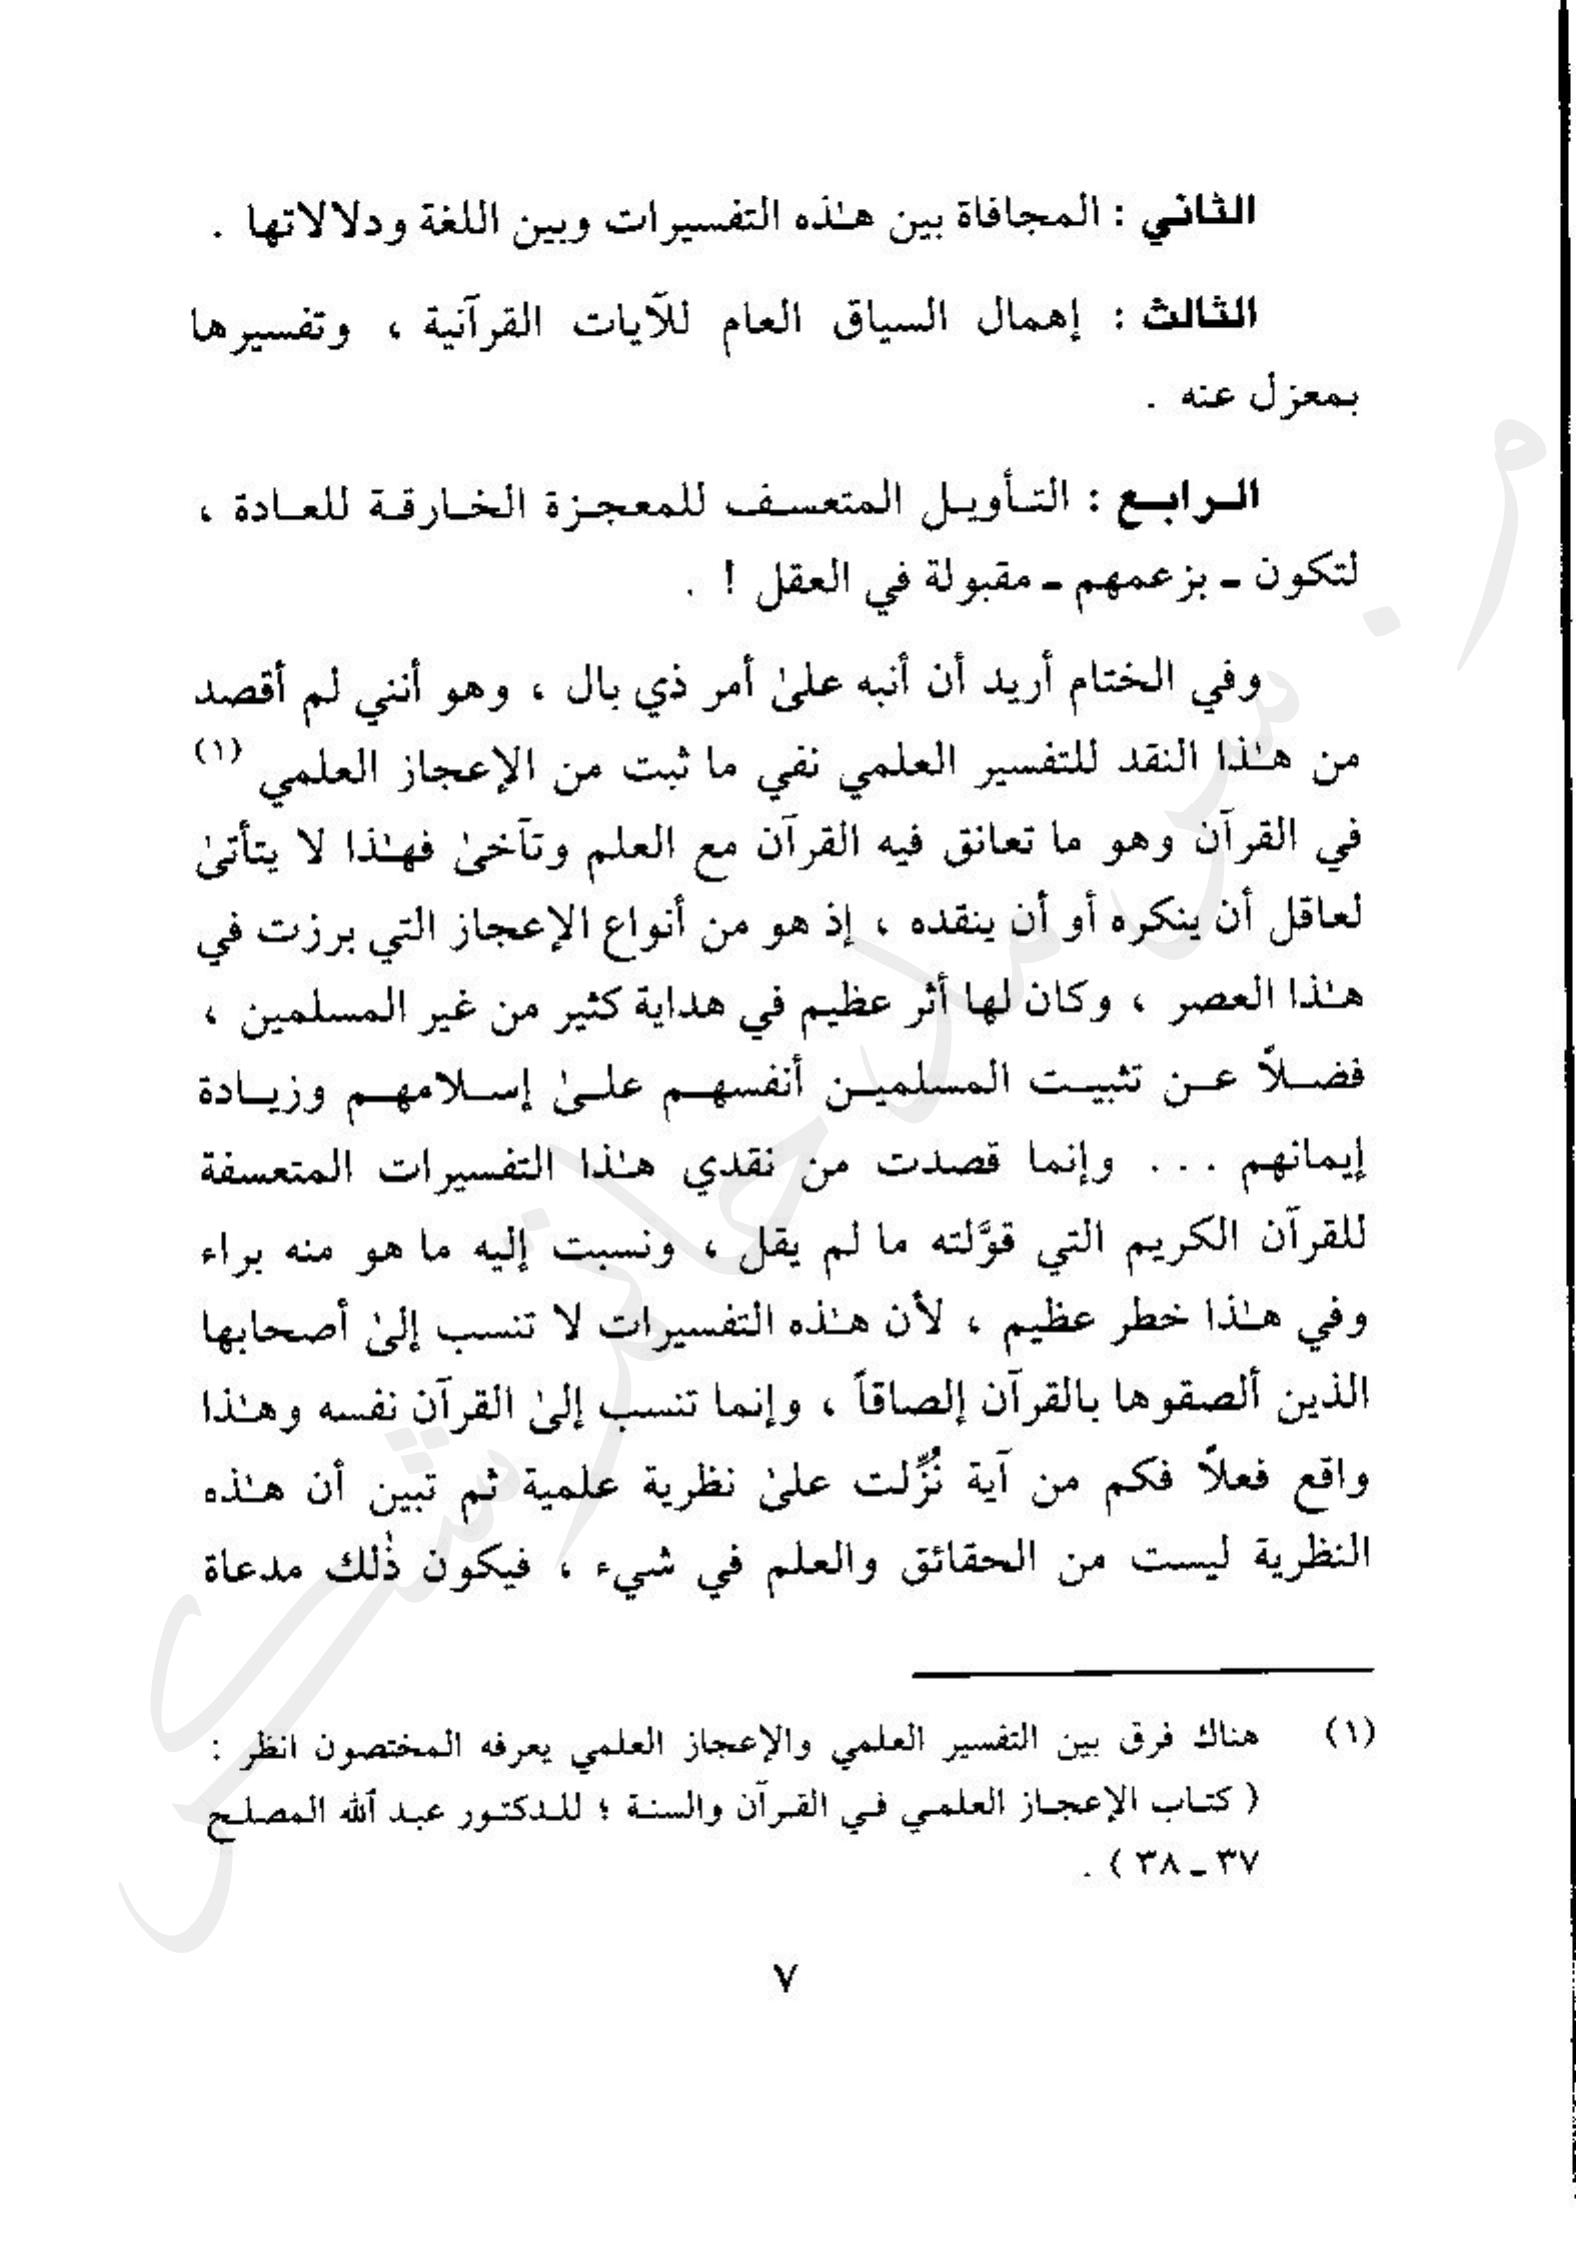 الثاني : المجافاة بين هـٰذه التفسيرات وبين اللغة ودلالاتها .
الثالث : إهمال السياق العام للآيات القرآنية ، وتفسيرها
بمعزل عنه .
الـرابـع : التـأويـل المتعسـف للمعجـزة الخـارقـة للعـادة ،
لتكون ـ بزعمهم ـ مقبولة في العقل ! .
وفي الختام أريد أن أنبه علىٰ أمر ذي بال ، وهو أنني لم أقصد
من هـٰذا النقد للتفسير العلمي نفي ما ثبت من الإعجاز العلمي (١)
في القرآن وهو ما تعانق فيه القرآن مع العلم وتآخىٰ فهـٰذا لا يتأتىٰ
لعاقل أن ينكره أو أن ينقده ، إذ هو من أنواع الإعجاز التي برزت في
هـٰذا العصر ، وكان لها أثر عظيم في هداية كثير من غير المسلمين ،
فضـلاً عـن تثبيـت المسلميـن أنفسهـم علـىٰ إسـلامهـم وزيـادة
إيمانهم . . . وإنما قصدت من نقدي هـٰذا التفسيرات المتعسفة
للقرآن الكريم التي قوَّلته ما لم يقل ، ونسبت إليه ما هو منه براء
وفي هـٰذا خطر عظيم ، لأن هـٰذه التفسيرات لا تنسب إلىٰ أصحابها
الذين ألصقوها بالقرآن إلصاقاً ، وإنما تنسب إلىٰ القرآن نفسه وهـٰذا
واقع فعلاً فكم من آية نُزِّلت علىٰ نظرية علمية ثم تبين أن هـٰذه
النظرية ليست من الحقائق والعلم في شيء ، فيكون ذٰلك مدعاة
(١) هناك فرق بين التفسير العلمي والإعجاز العلمي يعرفه المختصون انظر :
( كتـاب الإعجـاز العلمـي فـي القـرآن والسنـة ؛ للـدكتـور عبـد ٱلله المصلـح
٣٧ ـ ٣٨ ) .
٧